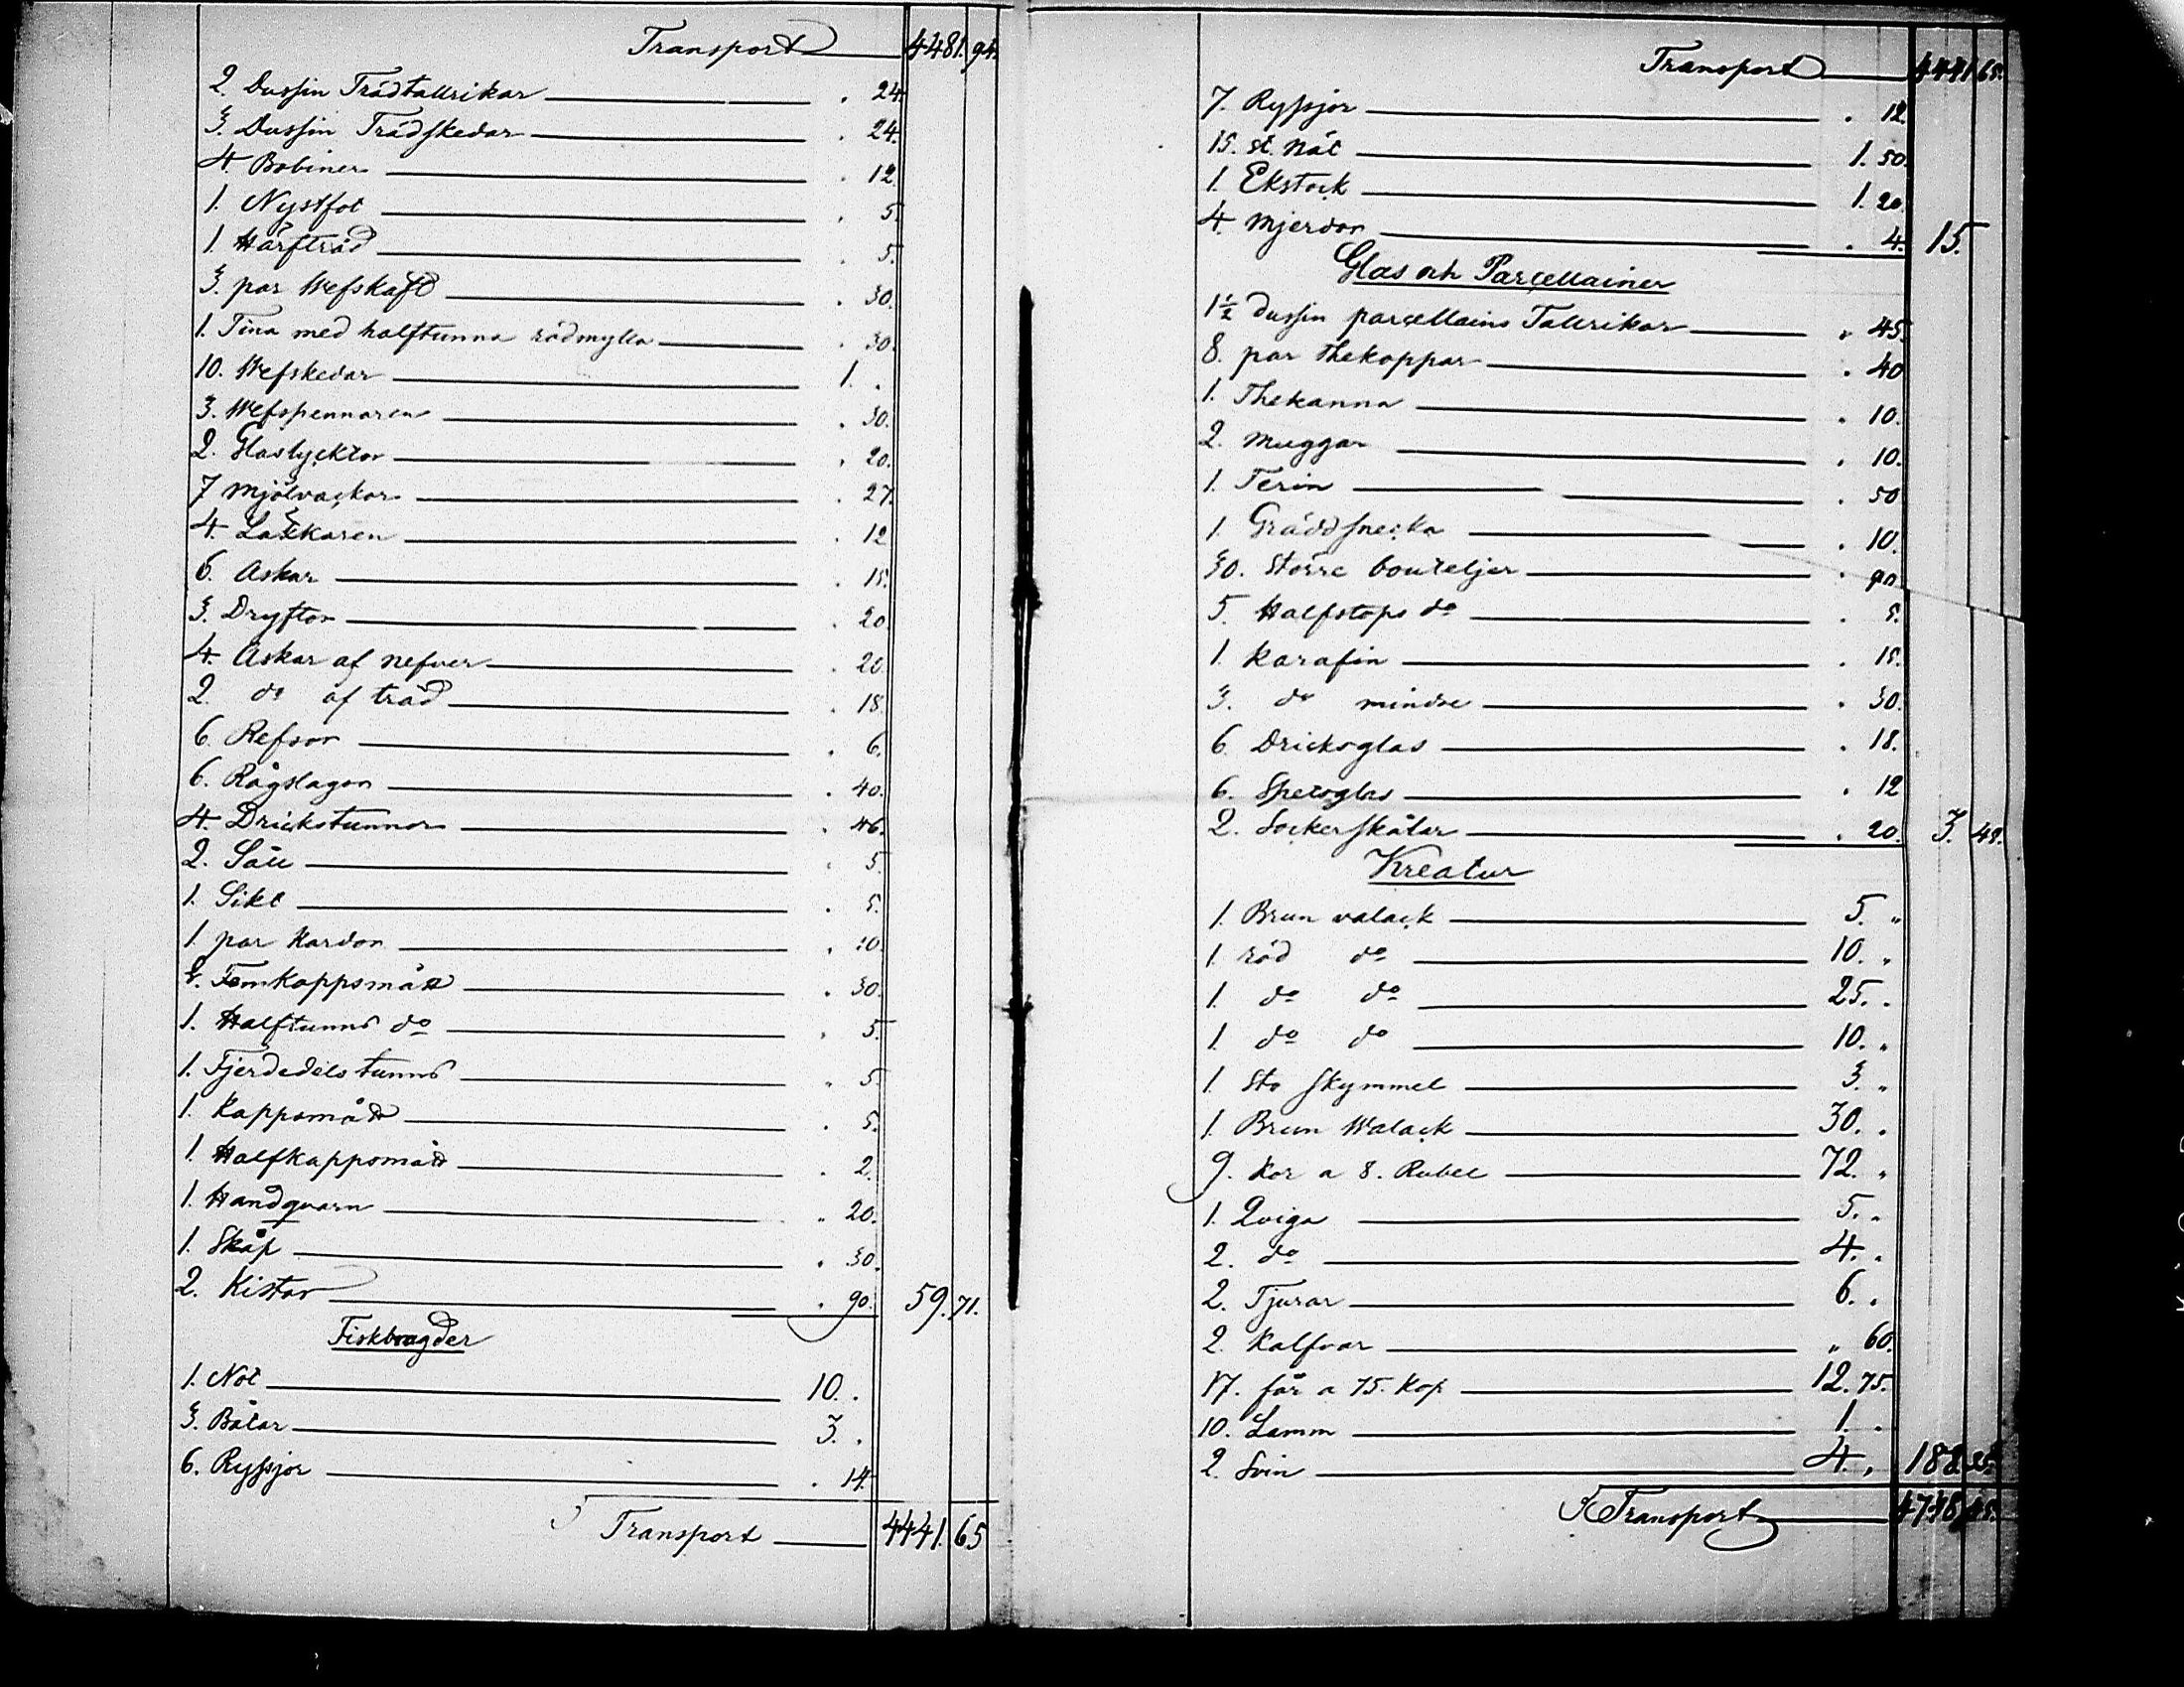 Transport 4481. 94.
2. Dussin Trädtallrikar . 24.
3. Dussin Trädskedar . 24.
4. Bobiner . 12.
1. Nystfot . 5.
1. Härfträd . 5.
3. par Wefskaft . 30.
1. Tina med halftunna rödmylla . 30.
10. Wefskedar 1. .
3. Wefspennaren . 30.
2. Glaslycktor . 20.
7 Mjölvackor . 27.
4. Låkkaren . 12
6. Askar . 15.
3. Dryftor . 20
4. Askar af nefver . 20.
2. do af träd . 18.
6. Refsor . 6.
6. Rågslagor . 40.
4. Drickstunnor . 46.
2. Såll . 5
1. Sikt . 5.
1. par Kardor . 10.
Femkappsmått . 30.
1. Halftunns do . 5.
1. Fjerdedels tunns . 5.
1. Kappsmått . 5.
1. Halfkappsmått . 2.
1. Handqvarn . 20.
1. Skåp . 30.
2. Kistor . 90. 59. 71.
Fiskbragder
1. Not 10. .
3. Båtar 3. .
6. Ryssjor . 14.
Transport 4441. 65
Transport 4441 65.
7. Ryssjor . 12.
15. st. Nät 1. 50.
1. Ekstock 1. 20.
4. Mjerdor . 4. 15.
Glas och Parcellainer
1½ dussin parcellains Tallrikar . 45.
8. par Thekoppar . 40
1. Thekanna . 10.
2. Muggar . 10.
1. Terin . 50
1. Gräddsnecka . 10.
30. Större bouteljer . 90
5. Halfstops do . 5.
1. Karafin . 15.
3. do mindre . 30.
6. Dricksglas . 18.
6. Spetsglas . 12
2. Sockerskålar . 20. 3. 49.
Kreatur
1. Brun valack 5. "
1. röd do 10. "
1. do do 25. .
1. do do 10. "
1. Sto Skymmel 3. "
1. Brun Walack 30. .
9. Kor a 8. Rubel 72. "
1. Qviga 5. "
2. do 4. .
2. Tjurar 6. .
2. Kalfvar " 60.
17. får a 75. Kop 12. 75.
10. Lamm 1. .
2. Svin 4. , 188.
Transport